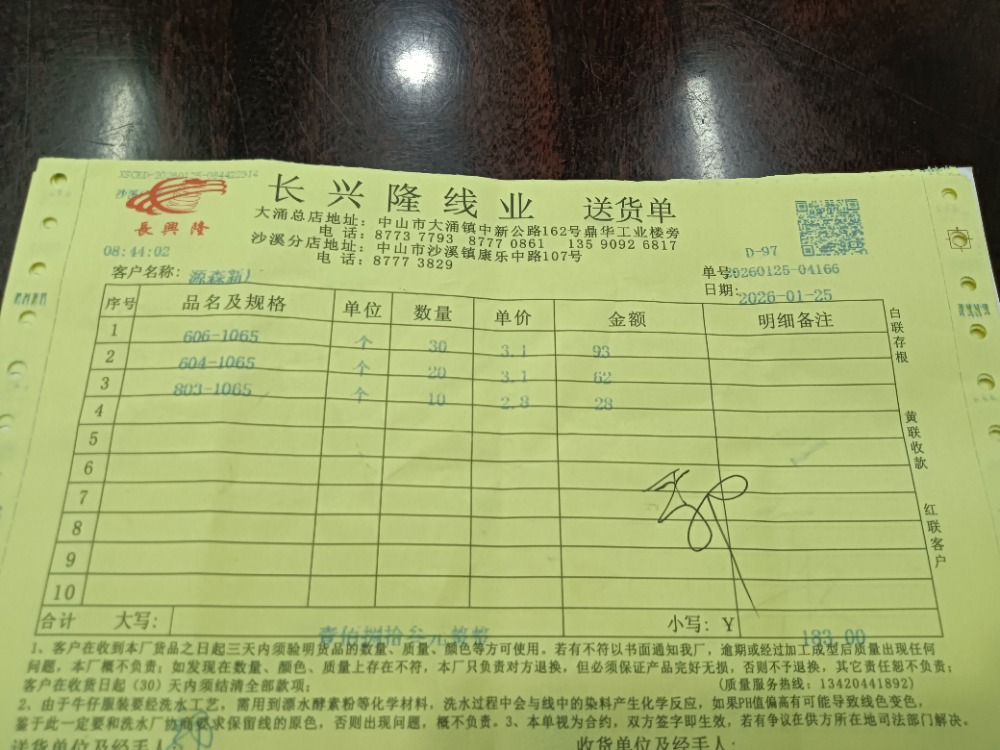 XSCKD-20260125-084422914
長興隆
长兴隆线业 送货单
大涌总店地址：中山市大涌镇中新公路162号鼎华工业楼旁
电 话：8773 7793 8777 0861 135 9092 6817
沙溪分店地址：中山市沙溪镇康乐中路107号
电 话：8777 3829
08:44:02
D-97
客户名称：源森新
单号20260125-04166
日期：2026-01-25
序号 品名及规格 单位 数量 单价 金额 明细备注
1 606-1065 个 30 3.1 93
2 604-1065 个 20 3.1 62
3 803-1065 个 10 2.8 28
4
5
6
7
8
9
10
合计 大写： 壹佰捌拾叁元 小写：￥ 183.00
白联存根
黄联收款
红联客户
1、客户在收到本厂货品之日起三天内须验明货品的数量、质量、颜色等方可使用。若有不符以书面通知我厂，逾期或经过加工成型后质量出现任何
问题，本厂概不负责；如发现在数量、颜色、质量上存在不符，本厂只负责对方退换，但必须保证产品完好无损，否则不予退换，其它责任恕不负责；
客户在收货日起（30）天内须结清全部款项； （质量服务热线：13420441892）
2、由于牛仔服装要经洗水工艺，需用到漂水酵素粉等化学材料，洗水过程中会与线中的染料产生化学反应，如果PH值偏高有可能导致线色变色，
鉴于此一定要和洗水厂协商要求保留线的原色，否则出现问题，概不负责。3、本单视为合约，双方签字即生效，若有争议在供方所在地司法部门解决。
送货单位及经手人 收货单位及经手人：